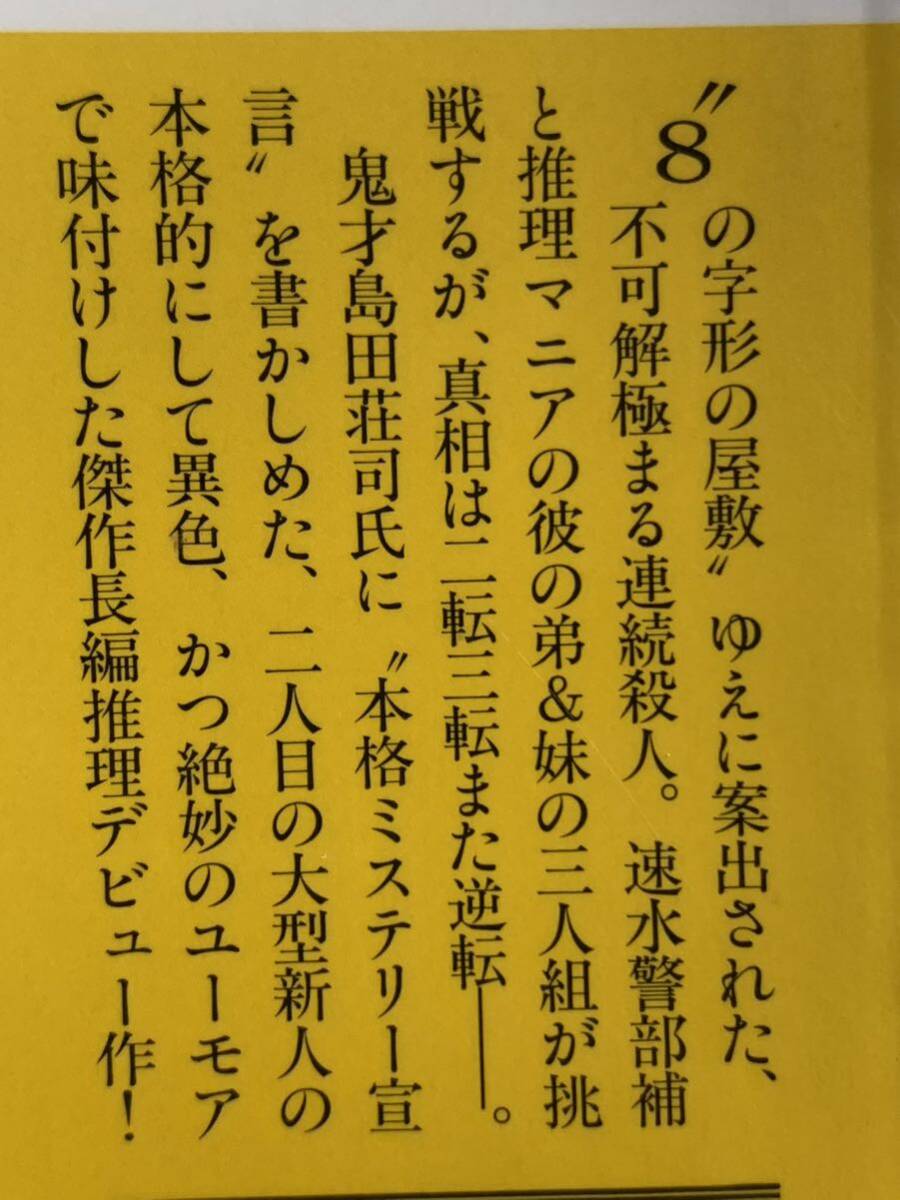 〝8の字形の屋敷〟ゆえに案出された、
不可解極まる連続殺人。速水警部補
と推理マニアの彼の弟&妹の三人組が挑
戦するが、真相は二転三転また逆転――。
鬼才島田荘司氏に〝本格ミステリー宣
言〟を書かしめた、二人目の大型新人の
本格的にして異色、かつ絶妙のユーモア
で味付けした傑作長編推理デビュー作！